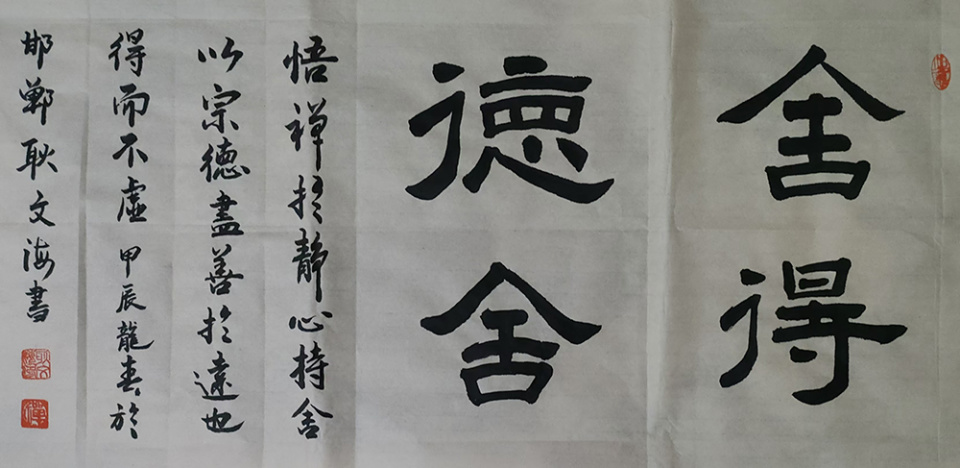 舍得
徳舍
悟禅於静心持舍
以宗徳盡善於遠也
得而不虚 甲辰龍春於
邯鄲耿文海書